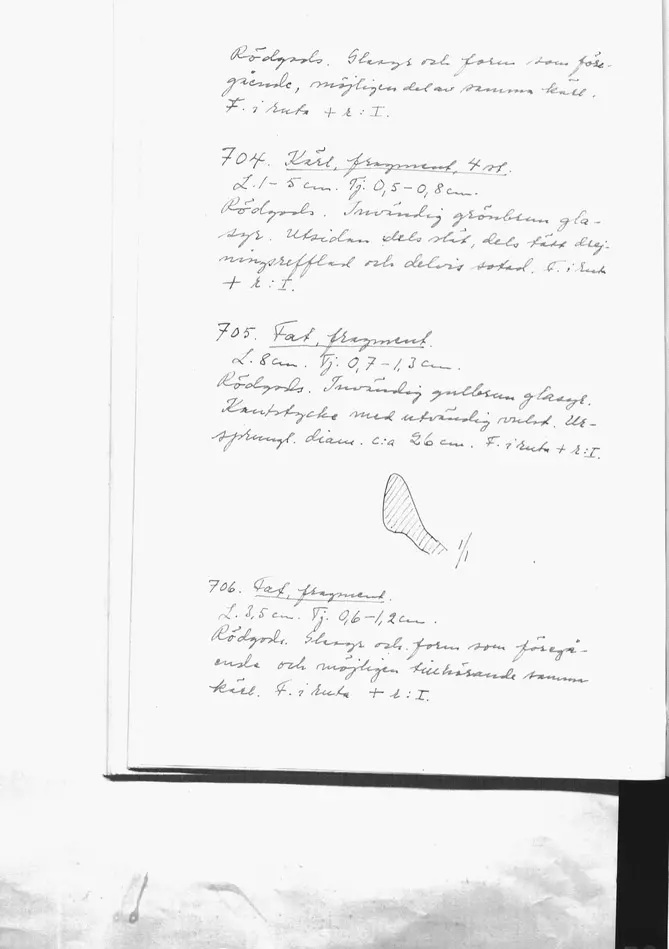 Rödgods. Glasyr och form som före-
gående, möjligen del av samma kärl.
F. i ruta + r : I.
704. Kärl, fragment, 4 st.
L. 1–5 cm. Tj. 0,5–0,8 cm.
Rödgods. Invändig grönbrun gla-
syr. Utsidan dels slät, dels tätt drej-
ningsrefflad och delvis sotad. F. i ruta
+ r : I.
705. Fat, fragment.
L. 8 cm. Tj. 0,7–1,3 cm.
Rödgods. Invändig gulbrun glasyr.
Kantstycke med utvändig vulst. Ur-
sprungl. diam. c:a 26 cm. F. i ruta + r : I.
1/1
706. Fat, fragment.
L. 3,5 cm. Tj. 0,6–1,2 cm.
Rödgods. Glasyr och form som föregå-
ende och möjligen tillhörande samma
kärl. F. i ruta + r : I.